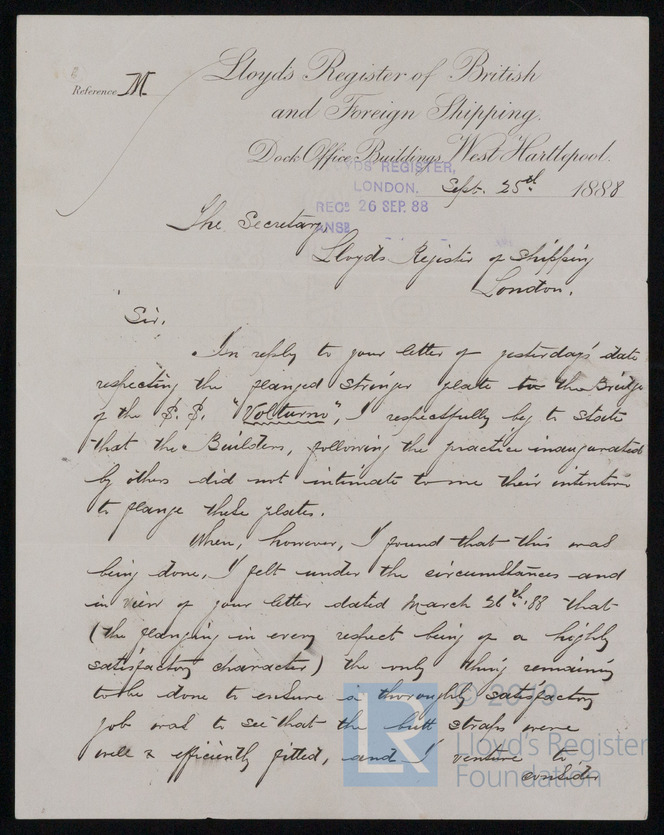 Reference M
Lloyd's Register of British
and Foreign Shipping.
Dock Office Buildings, West Hartlepool.
LLOYDS REGISTER,
LONDON.
REC^D 26 SEP. 88
ANS^D
Sept. 25th 1888
The Secretary,
Lloyds Register of Shipping
London.
Sir,
In reply to your letter of yesterday's date
respecting the flanged stringer plate to the Bridge
of the S.S. "Volturno", I respectfully beg to state
that the Builders, following the practice inaugurated
by others did not intimate to me their intention
to flange these plates.
When, however, I found that this was
being done, I felt under the circumstances and
in view of your letter dated March 26th 88 that
(the flanging in every respect being of a highly
satisfactory character) the only thing remaining
to be done to ensure a thoroughly satisfactory
job was to see that the butt straps were
well & efficiently fitted, and I venture to
consider
LR
© 2019
Lloyd's Register
Foundation